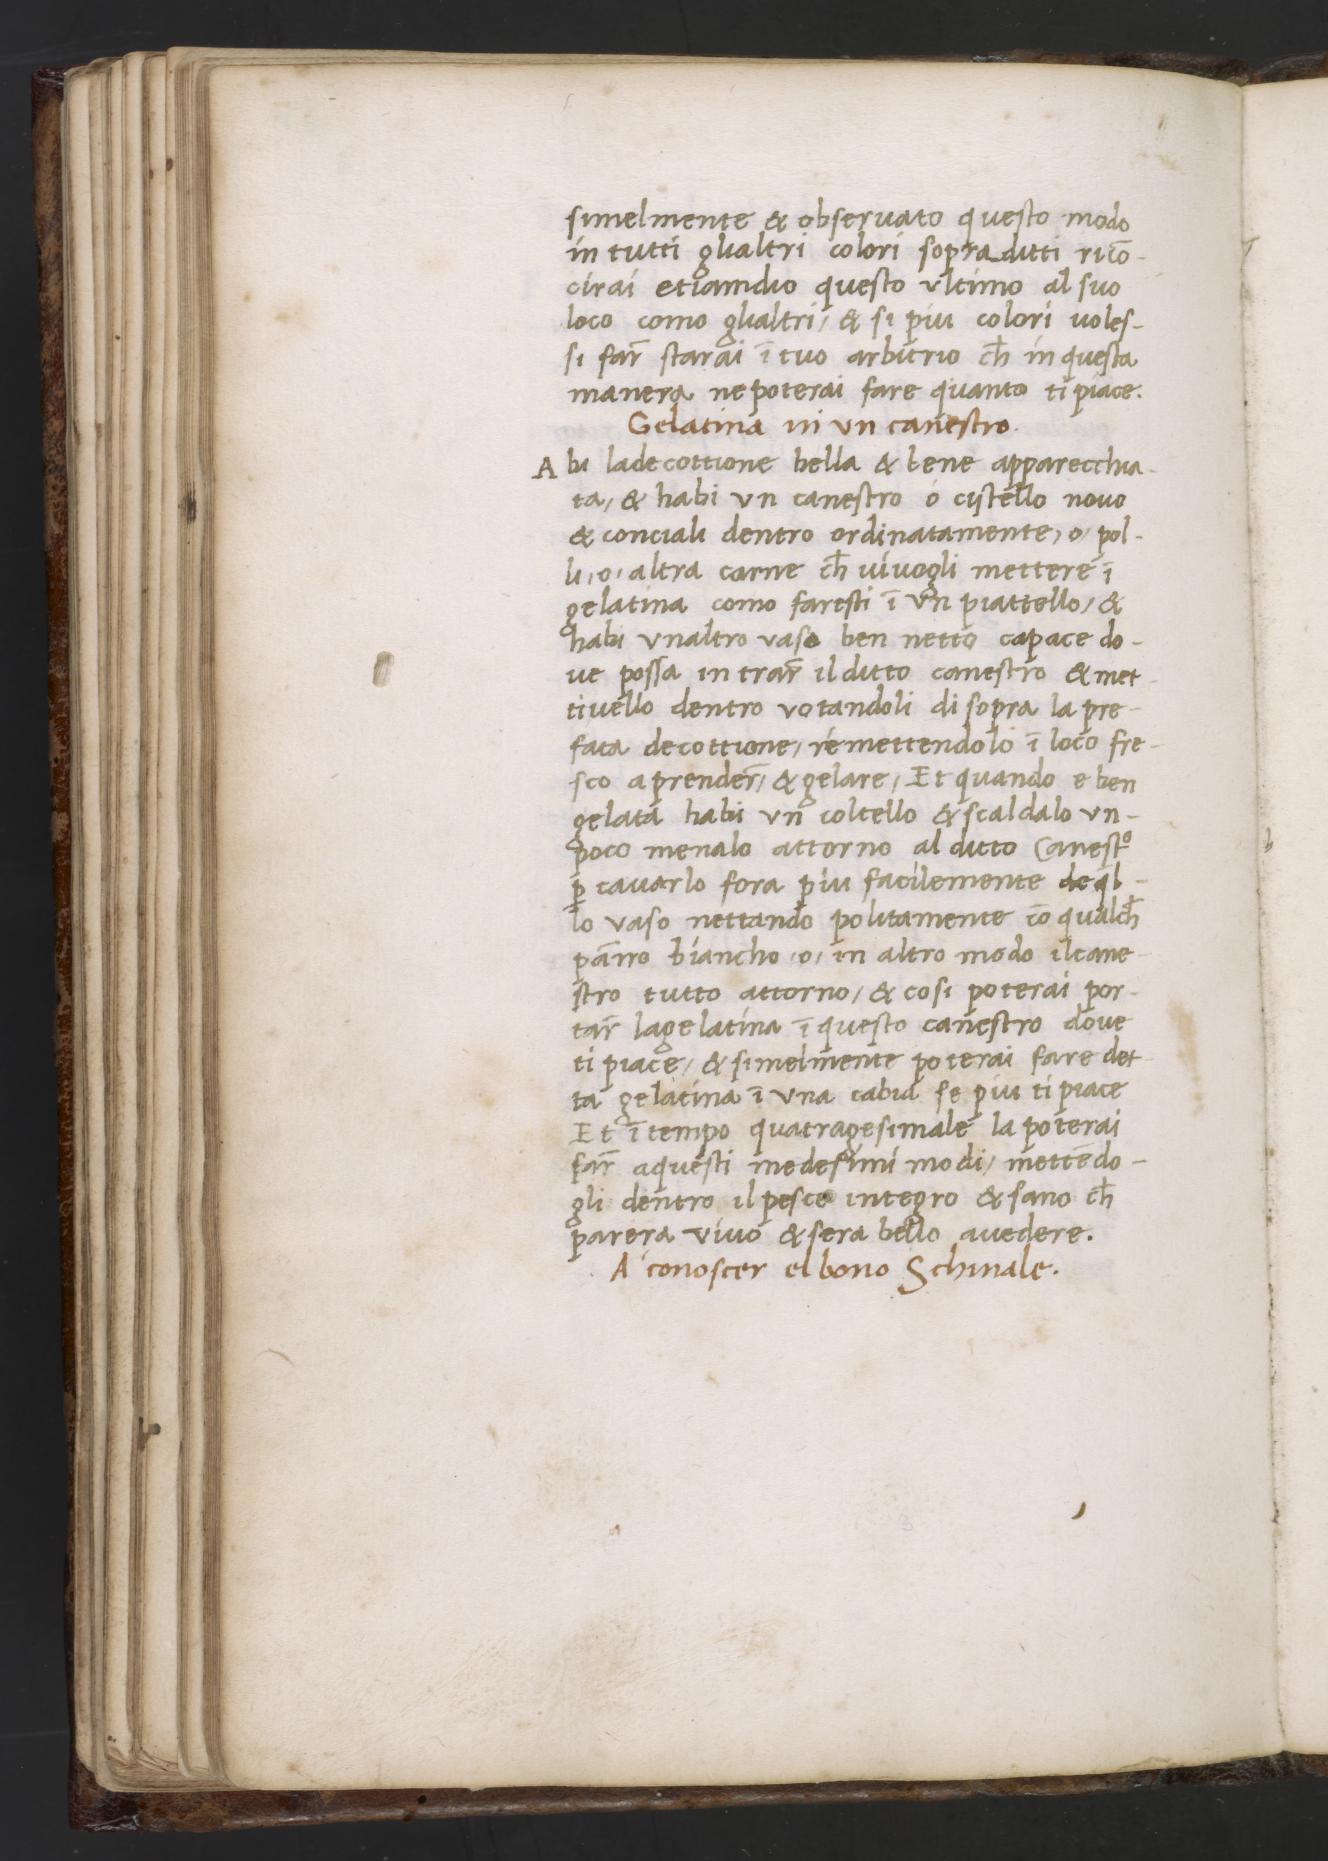 simelmente & observato questo modo
in tutti glialtri colori sopra ditti ricō-
cirai etiamdio questo ultimo al suo
loco como glialtri, & si piu colori voles-
si far̄ starai ī tuo arbitrio ch̄ in questa
manera ne poterai fare quanto ti piace.
Gelatina in un canestro.
Abi la decottione bella & bene apparecchia-
ta, & habi un canestro o cistello novo
& conciali dentro ordinatamente, o, pol-
li, o, altra carne ch̄ vi vogli mettere ī
gelatina como faresti ī un piattello, &
habi unaltro vaso ben netto capace do-
ve possa intrar̄ il ditto canestro & met-
tivello dentro votandoli di sopra la pre-
fata decottione, remettendolo ī loco fre-
sco a prender̄, & gelare, Et quando e ben
gelata habi un coltello & scaldalo un-
poco menalo attorno al ditto Canestº
p̄ cavarlo fora piu facilemente de ql-
lo vaso nettando politamente cō qualch̄
pāno biancho, o, in altro modo il cane-
stro tutto attorno, & cosi poterai por-
tar̄ la gelatina ī questo canestro dove
ti piace, & simelmente poterai fare det-
ta gelatina ī una cabia se piu ti piace
Et ī tempo quatragesimale la poterai
far̄ a questi medesimi modi, mettēdo-
gli dentro il pesce integro & sano ch̄
parera vivo & sera bello a vedere.
A conoscer el bono Schinale.